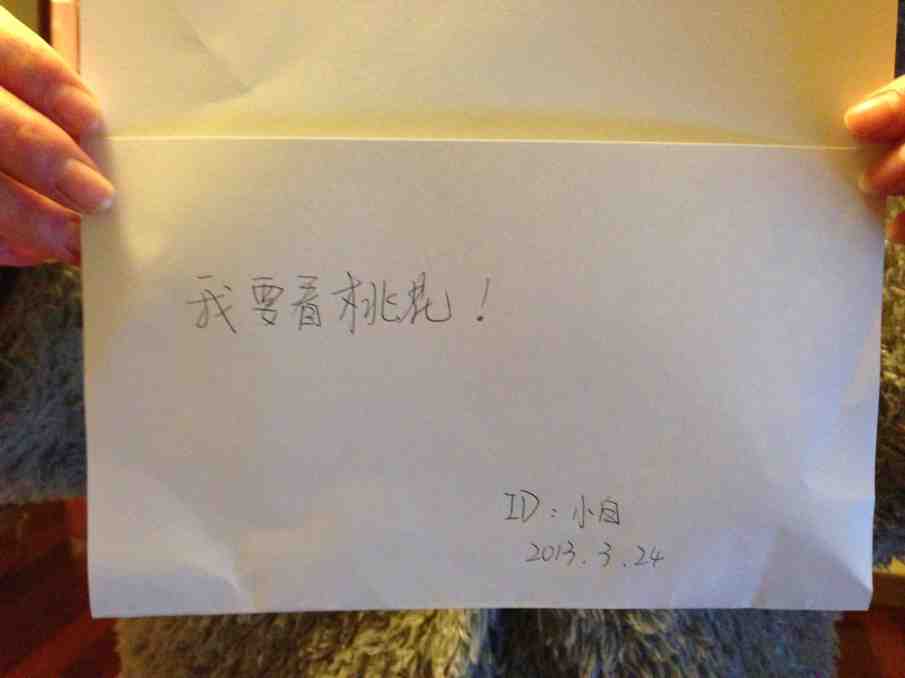 我要看桃花！
ID：小白
2013.3.24